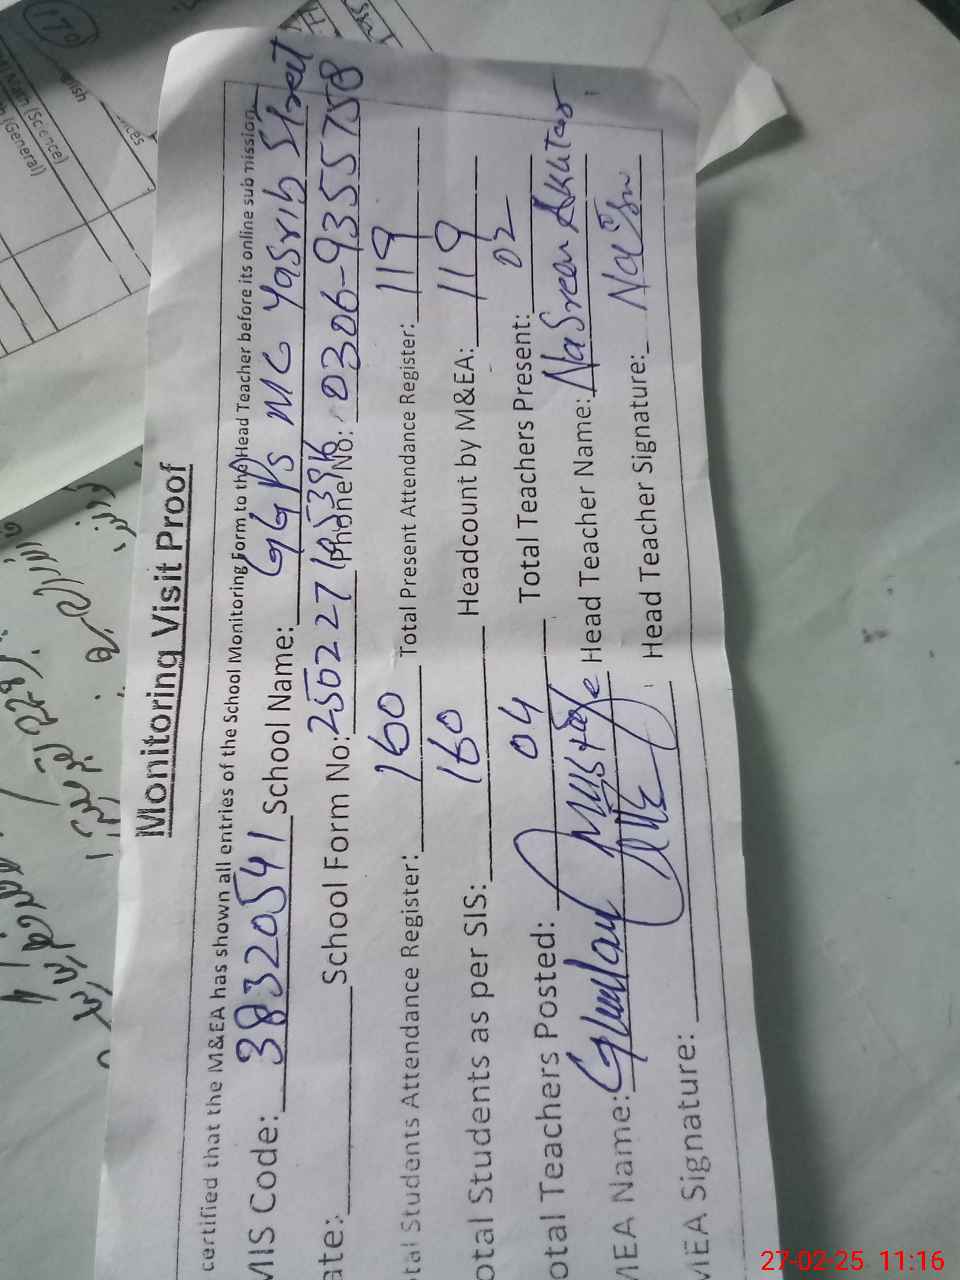 Monitoring Visit Proof
certified that the M&EA has shown all entries of the School Monitoring Form to the Head Teacher before its online submission
MIS Code: 38320541 School Name: GGPS MC Yasrib Street
ate: School Form No: 250227 Phone No: 0306-9355758
otal Students Attendance Register: 160 Total Present Attendance Register: 119
otal Students as per SIS: 160 Headcount by M&EA: 119
otal Teachers Posted: 04 Total Teachers Present: 02
MEA Name: Ghulam Mustafa Head Teacher Name: Nasreen Akhtar
MEA Signature: Head Teacher Signature:
170
lish
nces
Mam (Science)
(General)
27-02-25 11:16